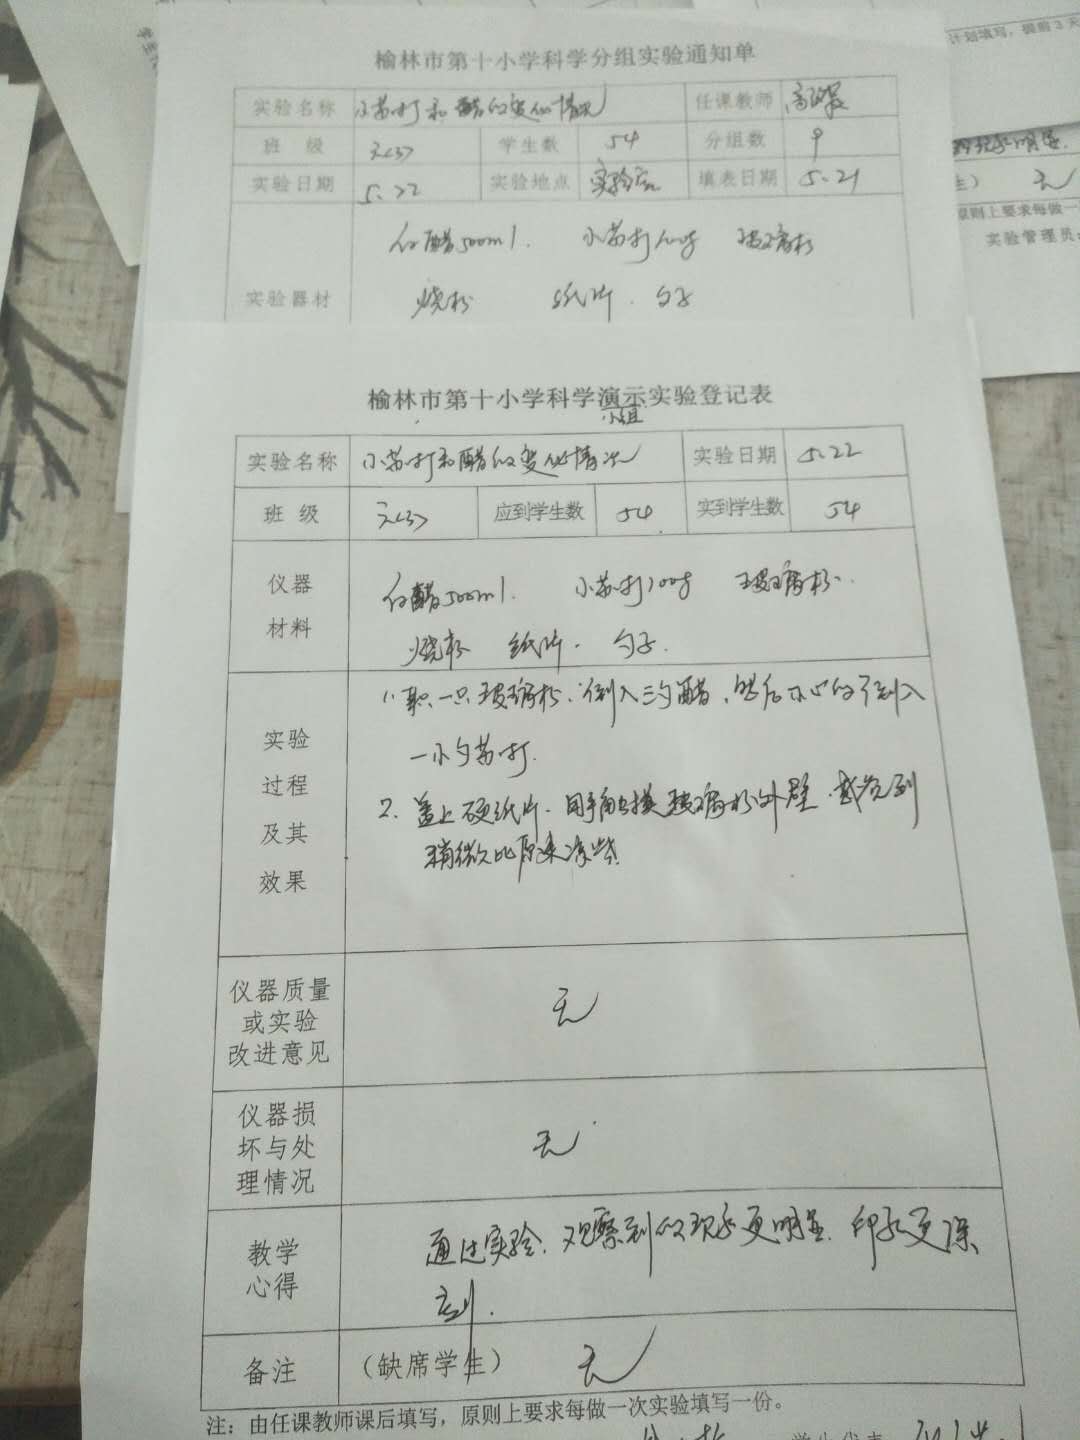 计划填写，提前3天
榆林市第十小学科学分组实验通知单
实验名称 小苏打和醋的变化情况 任课教师
班 级 三(3) 学生数 54 分组数 9
实验日期 5.22 实验地点 实验室 填表日期 5.21
实验器材 白醋500ml. 小苏打100g 玻璃杯
烧杯 纸片. 勺子
生） 无
原则上要求每做一
实验管理员:
榆林市第十小学科学演示实验登记表
小组
实验名称 小苏打和醋的变化情况 实验日期 5.22
班 级 三(3) 应到学生数 54 实到学生数 54
仪器
材料
白醋500ml. 小苏打100g 玻璃杯.
烧杯 纸片. 勺子.
实验
过程
及其
效果
1. 取一只玻璃杯.倒入三勺醋.然后小心的倒入
一小勺苏打.
2. 盖上硬纸片.用手触摸玻璃杯外壁.感觉到
稍微比原来凉些.
仪器质量
或实验
改进意见
无
仪器损
坏与处
理情况
无
教学
心得
通过实验.观察到的现象更明显.印象更深
刻.
备注 （缺席学生） 无
注：由任课教师课后填写，原则上要求每做一次实验填写一份。